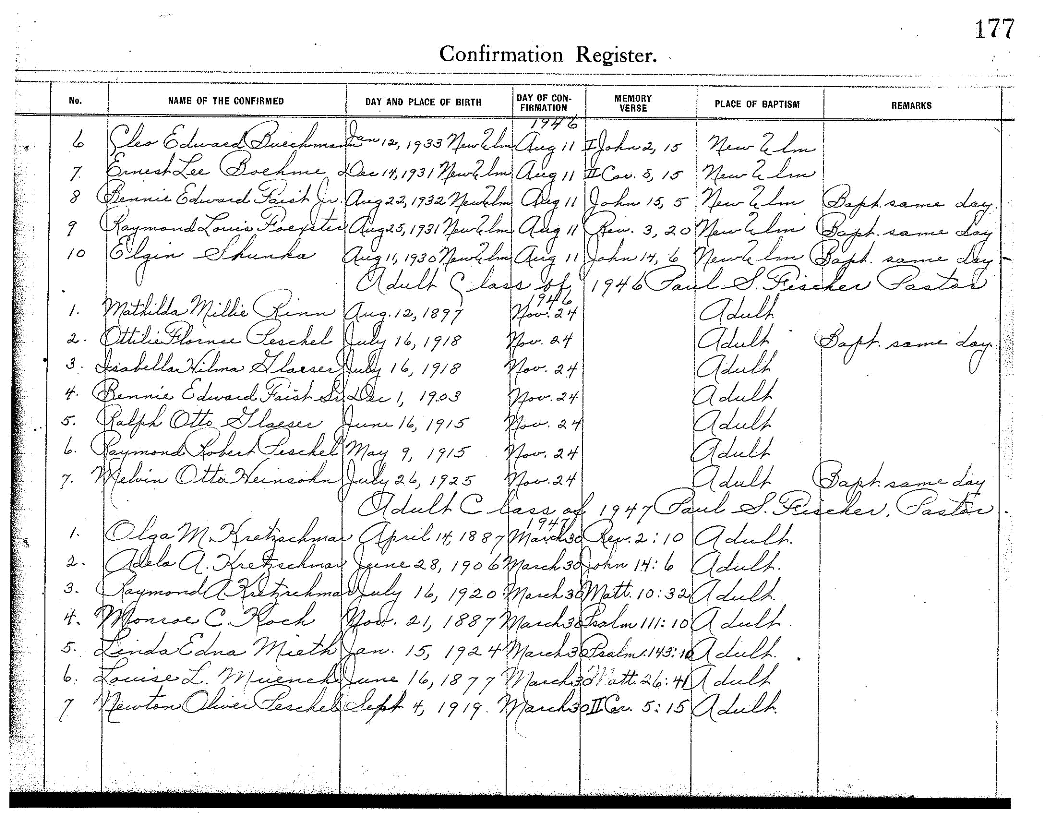 177
Confirmation Register.
No. NAME OF THE CONFIRMED DAY AND PLACE OF BIRTH DAY OF CON-FIRMATION MEMORY VERSE PLACE OF BAPTISM REMARKS
1946
6 Cleo Edward Bueckmann Jan 12, 1933 New Ulm Aug 11 I John 2, 15 New Ulm
7 Ernest Lee Boehme Dec 14, 1931 New Ulm Aug 11 II Cor. 5, 15 New Ulm
8 Bennie Edward Faist Jr. Aug 22, 1932 New Ulm Aug 11 John 15, 5 New Ulm Bapt. same day.
9 Raymond Louis Foerster Aug 25, 1931 New Ulm Aug 11 Rev. 3, 20 New Ulm Bapt. same day
10 Elgin Skunka Aug 11, 1930 New Ulm Aug 11 John 14, 6 New Ulm Bapt. same day
Adult Class of 1946 Paul S. Fischer Pastor
1946
1. Mathilda Millie Rinn Aug. 12, 1897 Nov. 24 Adult
2. Ottilie Flornce Peschel July 16, 1918 Nov. 24 Adult Bapt. same day.
3. Isabella Hilma Glaeser July 16, 1918 Nov. 24 Adult
4. Bennie Edward Faist Sr. Dec 1, 1903 Nov. 24 Adult
5. Ralph Otto Glaeser June 16, 1915 Nov. 24 Adult
6. Raymond Robert Peschel May 9, 1915 Nov. 24 Adult
7. Melvin Otto Heinsohn July 26, 1925 Nov. 24 Adult Bapt. same day
Adult Class of 1947 Paul S. Fischer, Pastor.
1947
1. Olga M. Kretzschmar April 14, 1887 March 30 Rev. 2:10 Adult.
2. Adela A. Kretzschmar June 28, 1906 March 30 John 14:6 Adult.
3. Raymond A Kretzschmar July 16, 1920 March 30 Matt. 10:32 Adult.
4. Monroe C. Koch Nov. 21, 1887 March 30 Psalm 111:10 Adult.
5. Linda Edna Mieth Jan. 15, 1924 March 30 Psalm 143:10 Adult.
6. Louise L. Muench June 16, 1877 March 30 Matt. 26:41 Adult
7 Newton Oliver Peschel Sept 4, 1919. March 30 II Cor. 5:15 Adult.